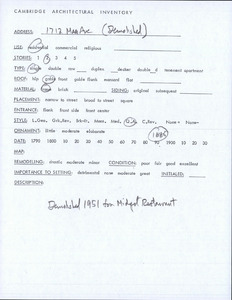 CAMBRIDGE ARCHITECTURAL INVENTORY
ADDRESS: 1713 Mass Ave (Demolished)
USE: residential commercial religious
STORIES: 1 2 3 4 5
TYPE: single double row duplex decker double d tenement apartment
ROOF: hip gable front gable flank mansard flat
MATERIAL: wood brick SIDING: original subsequent
PLACEMENT: narrow to street broad to street square
ENTRANCE: flank front side front center
STYLE: L.Geo. Grk.Rev. Ital. Mans. Q.A. C.Rev. None
ORNAMENT: little moderate elaborate 1885
DATE: 1790 1800 10 20 30 40 50 60 70 80 90 1900 10 20 30
MAP:
REMODELING: drastic moderate minor CONDITION: poor fair good excellent
IMPORTANCE TO SETTING: detrimental none moderate great INITIALED:
DESCRIPTION:
Demolished 1951 for Midget Restaurant